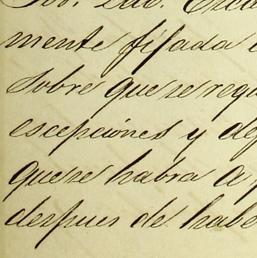 mente fijada
sobre que se requ
escepciones y de
que se habra a
despues de habe